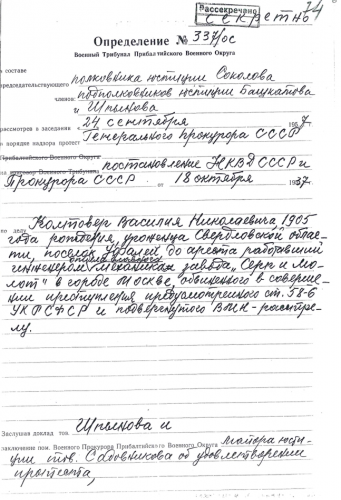 Рассекречено
Секретно
24
Определение № 337/ос
Военный Трибунал Прибалтийского Военного Округа
в составе
председательствующего полковника юстиции Соколова
членов: подполковников юстиции Башкатова
и Шпынова
рассмотрев в заседании 24 сентября 195 7
в порядке надзора протест Генерального прокурора СССР
Прибалтийского Военного Округа
постановление НКВД СССР и
Прокурора СССР от 18 октября 1937.
по делу Колтовер Василия Николаевича, 1905
года рождения, уроженца Свердловской облас-
ти, поселок до ареста работавший
инженером механиком завода "Серп и Мо-
лот" в городе Москве, обвиненного в соверше-
нии преступления предусмотренного ст. 58-6
УК РСФСР и подвергнутого ВМН - расстре-
лу.
Заслушав доклад тов. Шпынова и
заключение пом. Военного Прокурора Прибалтийского Военного Округа майора юсти-
ции тов. Садовникова об удовлетворении
протеста,